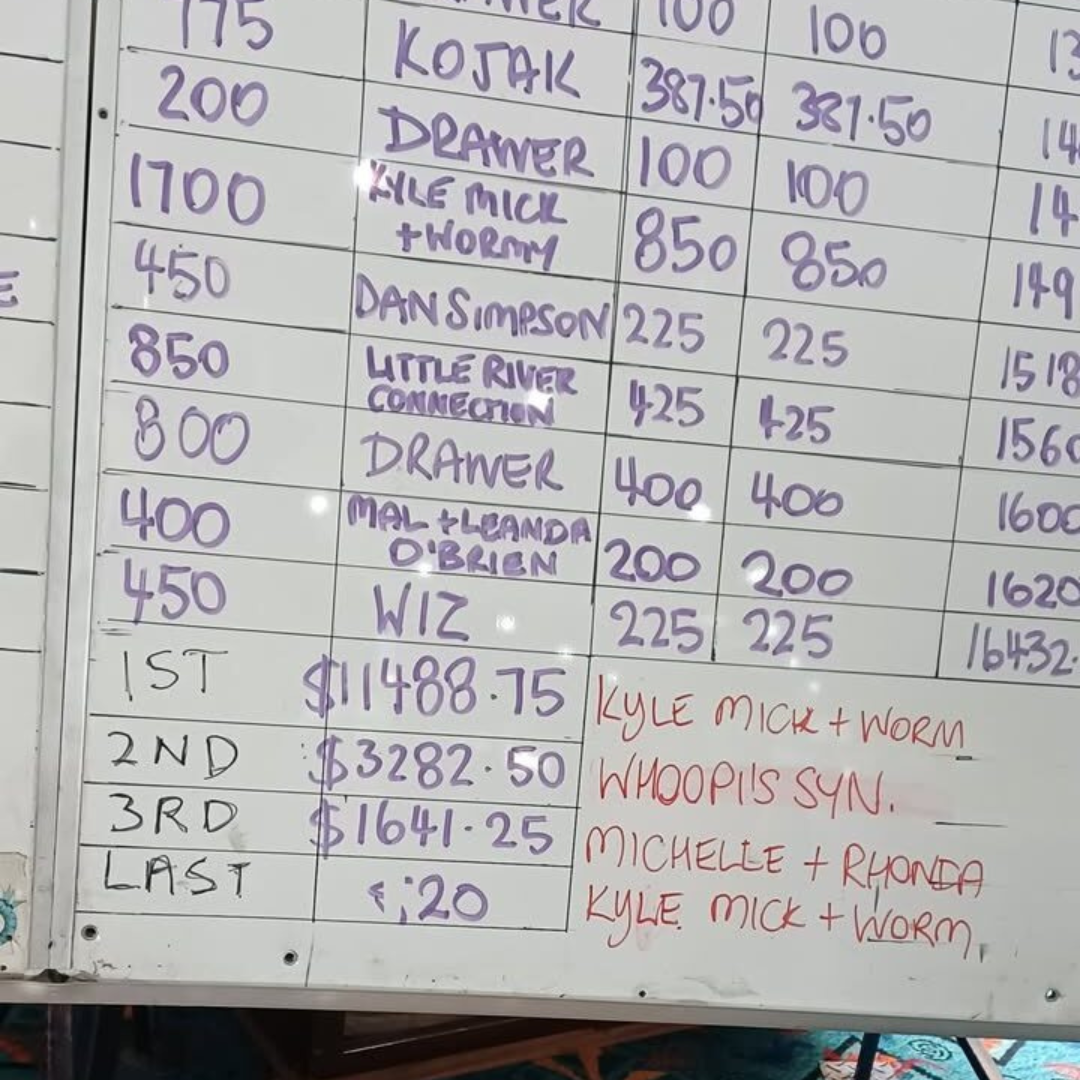 775 100 100 13
200 KOJAK 387.50 387.50 14
1700 DRAWER 100 100 14
450 KYLE MICK 850 850 149
+WORMY
850 DAN SIMPSON 225 225 1518
800 LITTLE RIVER 425 425 1560
CONNECTION
400 DRAWER 400 400 1600
450 MAL + LEANDA 200 200 1620
O'BRIEN
WIZ 225 225 16432.
1ST $11488.75 KYLE MICK + WORM
2ND $3282.50 WHOOPI'S SYN.
3RD $1641.25 MICHELLE + RHONDA
LAST 20 KYLE MICK + WORM
E